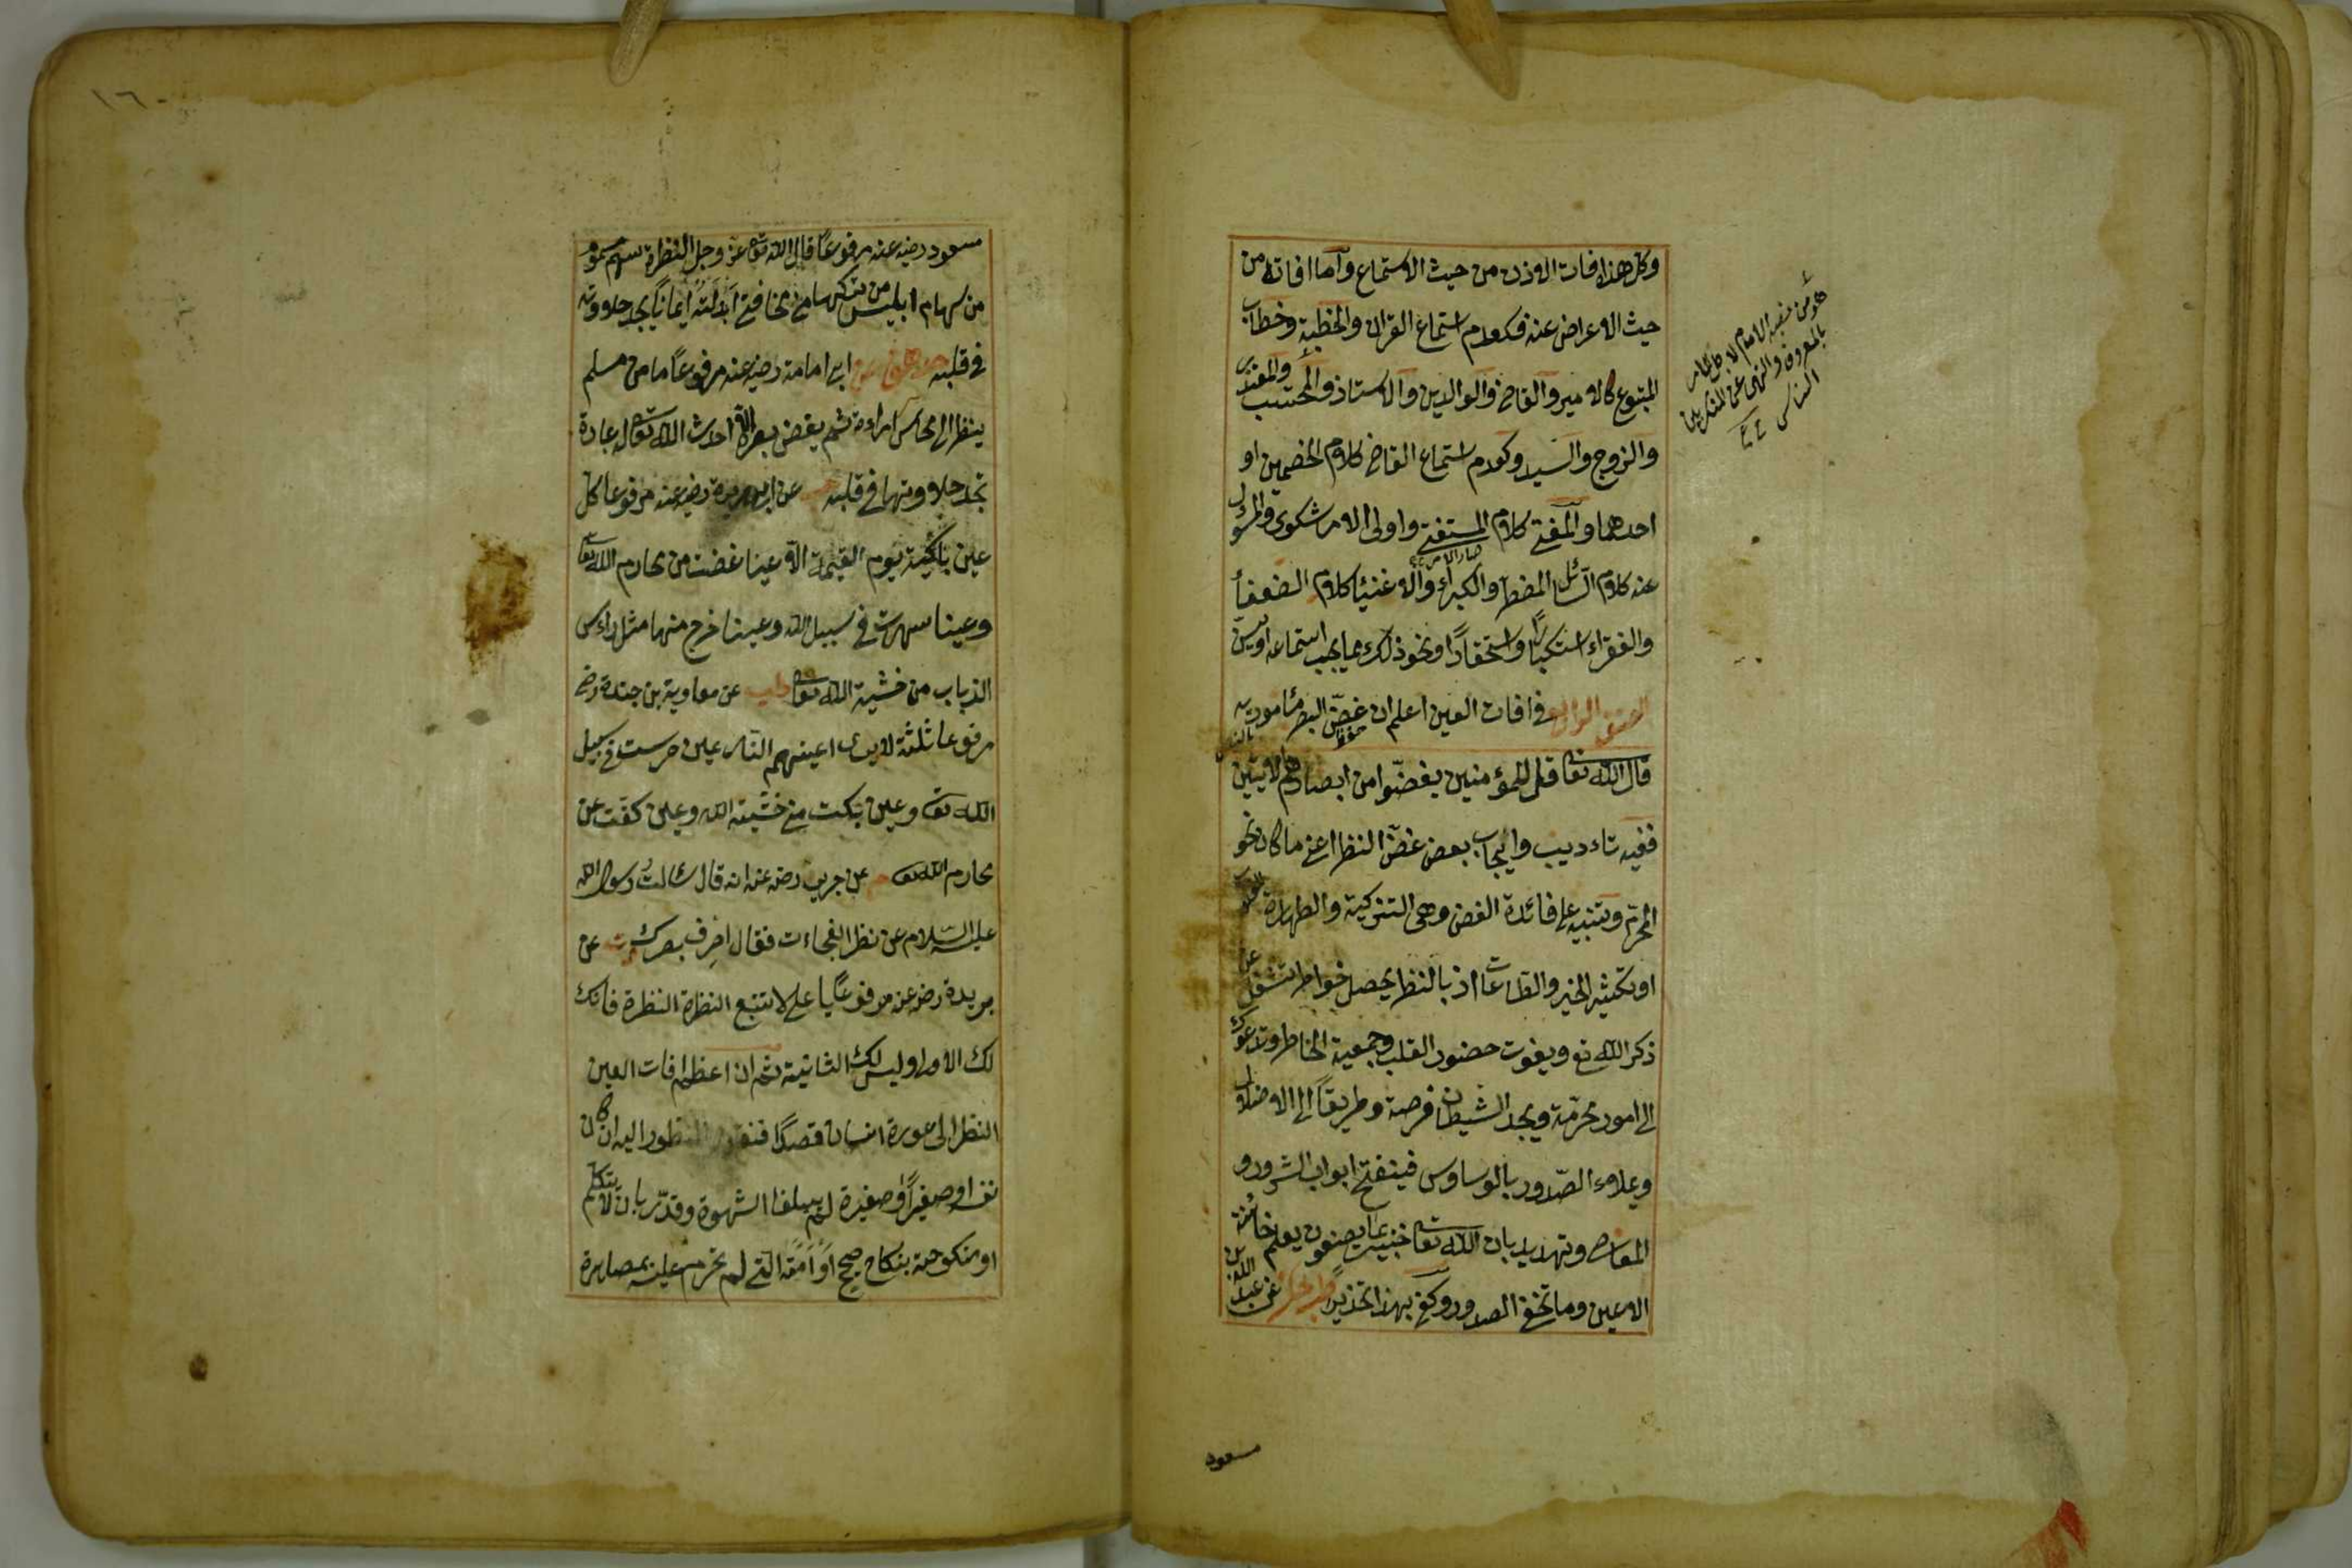 وكل هذا افات الاذن من حيث الاستماع وآما افاته من
حيث الاعراض عنه فكعدم استماع القران والخطبة وخطاب
المتبوع كالامير والقاضي والوالدين والاستاذ والمحتسب والمقتدى
والزوج والسيد وكعدم استماع القاضي كلام الخصمين او
احدهما والمفتي كلام المستفتي واولى الامر شكوى والمسؤل
عنه كلام السائل المضطر والكبراء والاغنيا كلام الضعفاء
والفقراء استكبارا واستحقارا ونحو ذلك مما يجب استماعه او يسن
الصنف الرابع في افات العين اعلم ان غض البصر مأمور به
قال الله تعا قل للمؤمنين يغضوا من ابصارهم الآيتين
ففيه تاءديب وايجاب بعض غض النظر اعني ما كان نحو
المحرم وتنبيه على فائدة الغض وهي التزكية والطهارة
او تكثير الخير والطاعات اذ بالنظر يحصل خواطر تشغل عن
ذكر الله تع ويفوت حضور القلب وجمعية الخاطر وتدعوك
الى امور محرمة ويجد الشيطان فرصة وطريقاً الى الاضلال
ويملاء الصدور بالوساوس فينفتح ابواب الشرور و
المعاصي وتهديد بان الله تعا خبير بما يصنعون يعلم خائنة
الاعين وما تخفي الصدور وكفى بهذا تحذيراً عن عبد الله بن
هو من نصبه الامام لاجل الامر
بالمعروف والنهي عن المنكر بين
الناس
مسعود
١٦٠
مسعود رضي عنه مرفوعاً قال الله تعا عز وجل النظرة سهم مسموم
من سهام ابليس من تركها من مخافتي ابدلته ايمانا يجد حلاوته
في قلبه ابي امامة رضي عنه مرفوعاً ما من مسلم
ينظر الى محاسن امراءة ثم يغض بصره الا احدث الله تعا له عبادة
تجد حلاوتها في قلبه عن ابي هريرة رضي عنه مرفوعا كل
عين باكية يوم القيمة الا عينا غضت من محارم الله تعا
وعينا سهرت في سبيل الله وعينا خرج منها مثل راءس
الذباب من خشية الله تعا طب عن معاوية بن جندة رضي
مرفوعا ثلثة لا يرى اعينهم النار عين حرست في سبيل
الله تعا وعين بكت من خشية الله وعين كفت عن
محارم الله تعا م عن جرير رضي عنه انه قال سالت رسول الله
عليه السلام عن نظر الفجاءت فقال اصرف بصرك عن
بريدة رضي عنه مرفوعاً يا علي لا تتبع النظرة النظرة فانك
لك الاولى وليس لك الثانية ثم ان اعظم افات العين
النظر الى عورة انسان قصدا فنقول المنظور اليه ان كان
نفسه او صغيراً او صغيرة لم يبلغا الشهوة وقدر بان لا يتكلم
او منكوحة بنكاح صحيح او امته التي لم تحرم عليه بمصاهرة